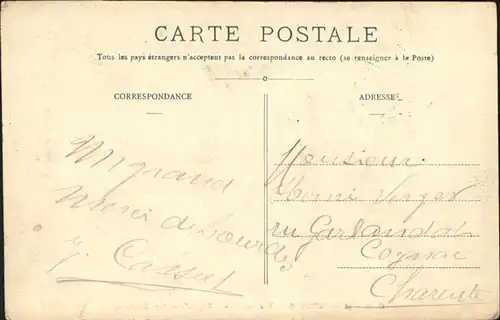 CARTE POSTALE
Tous les pays étrangers n'acceptent pas la correspondance au recto (se renseigner à la Poste)
CORRESPONDANCE
ADRESSE
Un grand
merci de Lourdes
Monsieur
Henri Verger
rue Garlandat
Cognac
Charente